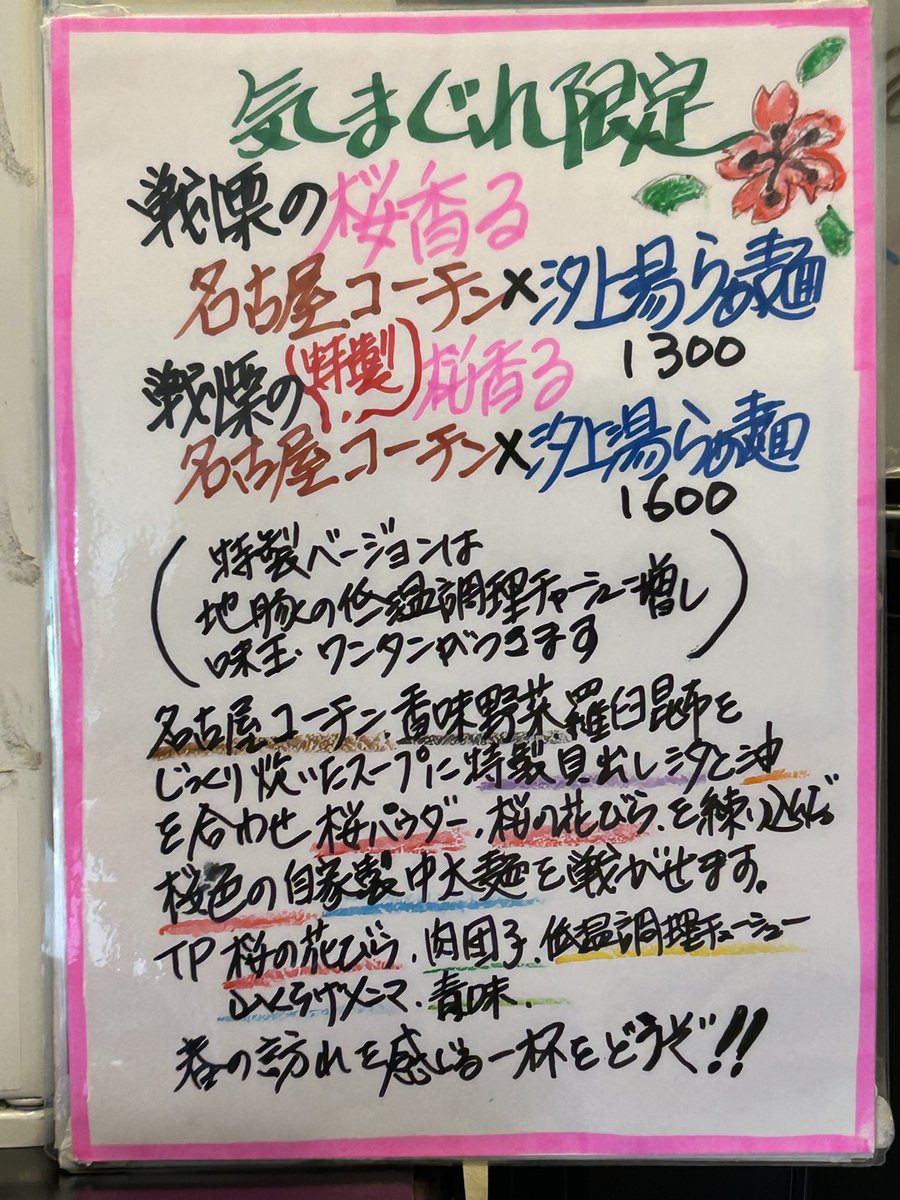 気まぐれ限定
戦慄の桜香る
名古屋コーチン×汐上湯らぁ麺
1300
戦慄の(特製)桜香る
名古屋コーチン×汐上湯らぁ麺
1600
(特製バージョンは
地豚の低温調理チャーシュー増し
味玉・ワンタンがつきます)
名古屋コーチン.香味野菜.羅臼昆布を
じっくり炊いたスープに特製貝出し汐と油
を合わせ桜パウダー、桜の花びら、を練り込んだ
桜色の自家製中太麺を戦がせます。
TP 桜の花びら、肉団子、低温調理チャーシュー
山くらげメンマ、青味、
春の訪れを感じる一杯をどうぞ!!